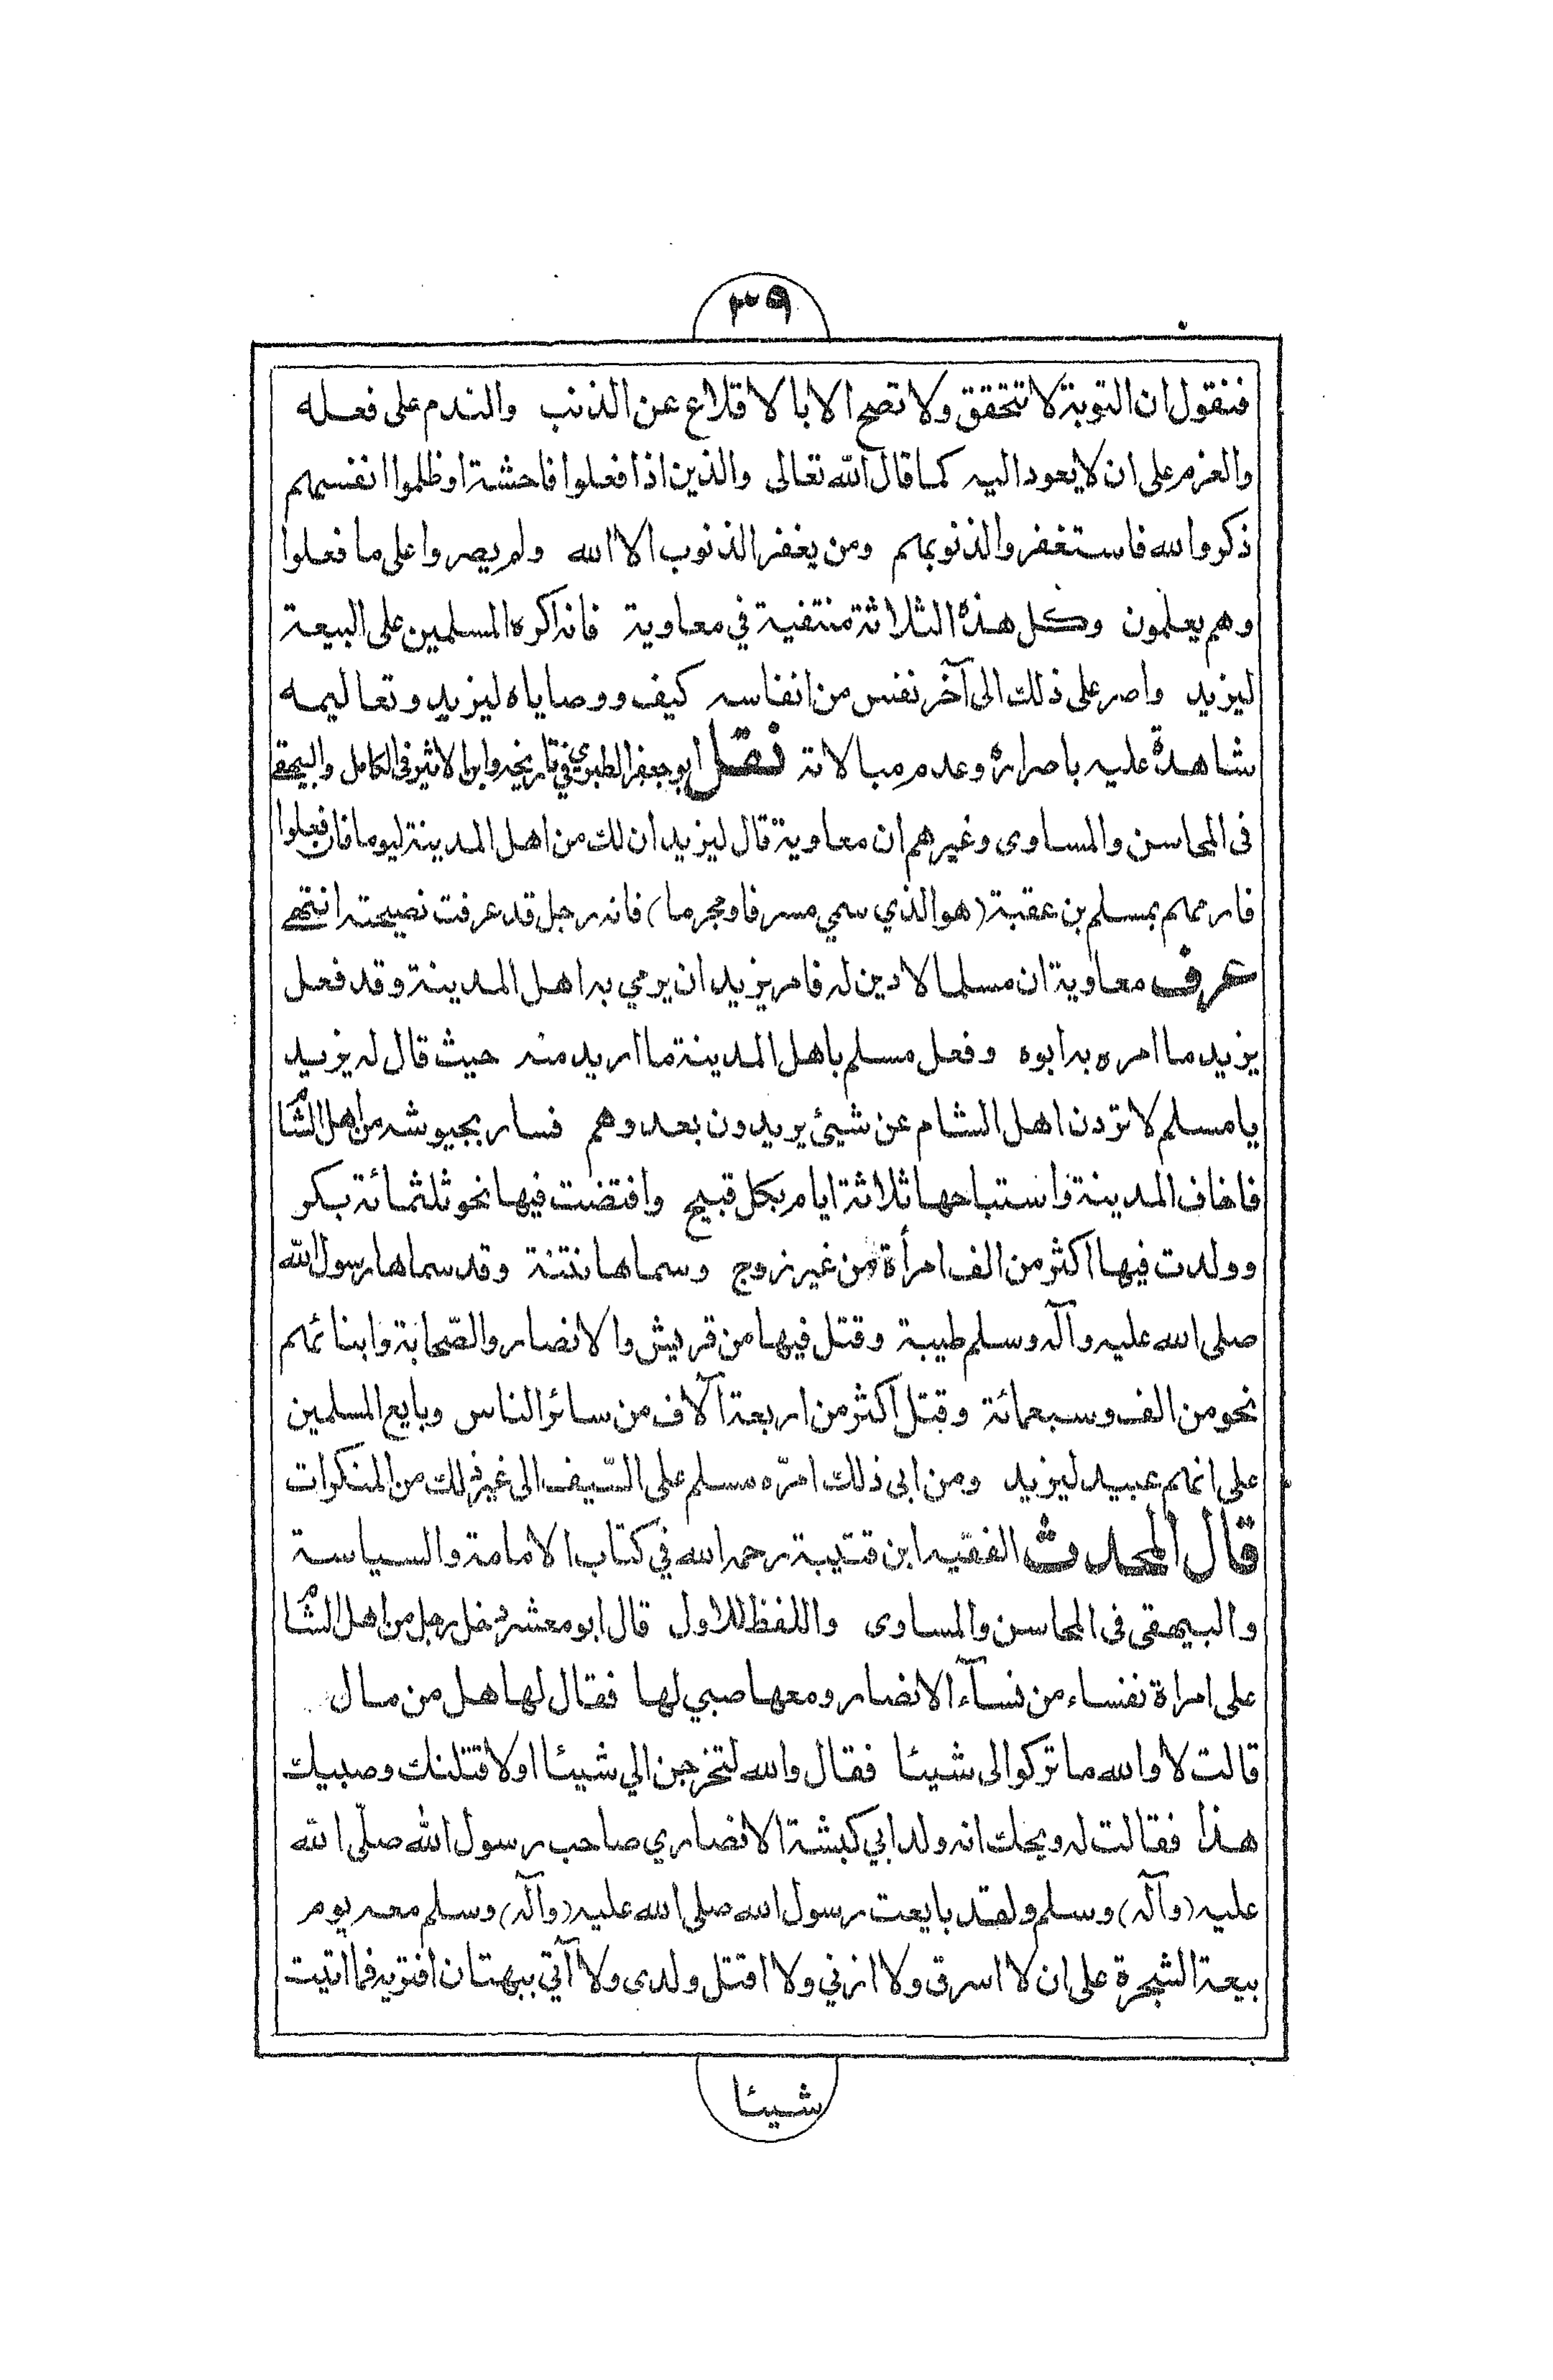 ٣٩
فنقول ان التوبة لا تتحقق ولا تصح الا بالاقلاع عن الذنب والندم على فعله
والعزم على ان لا يعود اليه كما قال الله تعالى والذين اذا فعلوا فاحشة او ظلموا انفسهم
ذكروا الله فاستغفروا لذنوبهم ومن يغفر الذنوب الا الله ولم يصروا على ما فعلوا
وهم يعلمون وكل هذه الثلاثة منتفية في معاوية فانه اكره المسلمين على البيعة
ليزيد واصر على ذلك الى آخر نفس من انفاسه كيف ووصاياه ليزيد وتعاليمه
شاهدة عليه باصراره وعدم مبالاته نقل ابو جعفر الطبري في تاريخه وابن الاثير في الكامل والبيهقي
فى المحاسن والمساوى وغيرهم ان معاوية قال ليزيد ان لك من اهل المدينة ليوما فان فعلوا
فارمهم بمسلم بن عقبة (هو الذي سمي مسرفا ومجرما) فانه رجل قد عرفت نصيحته انتهى
عرف معاوية ان مسلما لا دين له فامر يزيد ان يرمي به اهل المدينة وقد فعل
يزيد ما امره به ابوه وفعل مسلم باهل المدينة ما اريد منه حيث قال له يزيد
يا مسلم لا تردن اهل الشام عن شيئ يريدون بعدوهم فسار بجيوشه من اهل الشام
فاخاف المدينة واستباحها ثلاثة ايام بكل قبيح وافتضت فيها نحو ثلثمائة بكر
وولدت فيها اكثر من الف امرأة من غير زوج وسماها نتنة وقد سماها رسول الله
صلى الله عليه وآله وسلم طيبة وقتل فيها من قريش والانصار والصّحابة وابنائهم
نحو من الف وسبعمائة وقتل اكثر من اربعة آلاف من سائر الناس وبايع المسلمين
على انهم عبيد ليزيد ومن ابى ذلك امرّه مسلم على السّيف الى غير ذلك من المنكرات
قال المحدث الفقيه ابن قتيبة رحمه الله في كتاب الامامة والسياسة
والبيهقى فى المحاسن والمساوى واللفظ للاول قال ابو معشر دخل رجل من اهل الشام
على امراة نفساء من نسآء الانصار ومعها صبي لها فقال لها هل من مال
قالت لا والله ما تركوا لى شيئا فقال والله لتخرجن الي شيئا او لاقتلنك وصبيك
هذا فقالت له ويحك انه ولد ابي كبشة الانصاري صاحب رسول الله صلّى الله
عليه (وآله) وسلم ولقد بايعت رسول الله صلى الله عليه (وآله) وسلم معه يوم
بيعة الشجرة على ان لا اسرق ولا ازني ولا اقتل ولدى ولا آتي ببهتان افتريه فما اتيت
شيئا